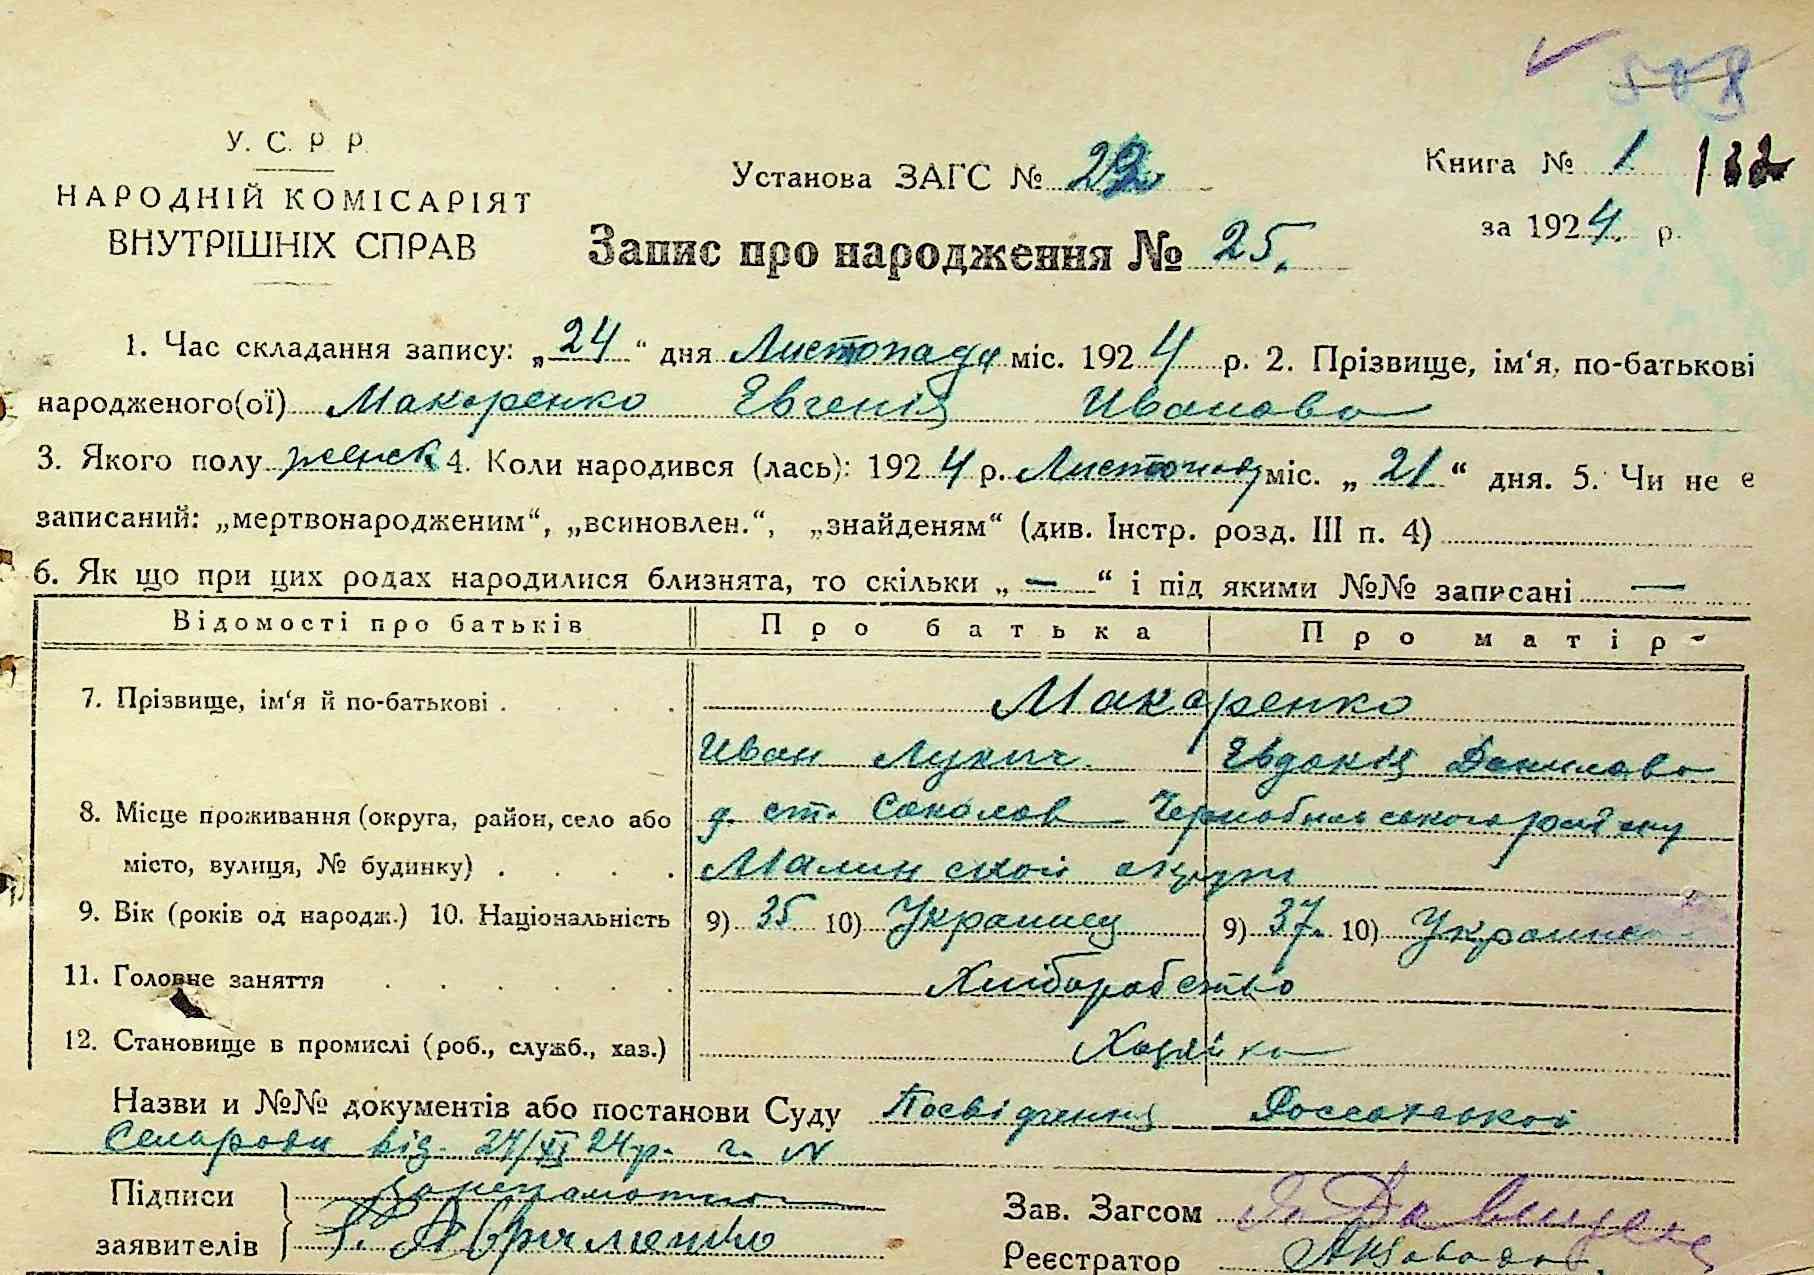 508
У. С. Р. Р.
НАРОДНІЙ КОМІСАРІЯТ
ВНУТРІШНІХ СПРАВ
Установа ЗАГС № 22
Книга № 1
за 1924 р.
Запис про народження № 25.
1. Час складання запису: „24“ дня Листопада міс. 1924 р. 2. Прізвище, ім‘я, по-батькові
народженого(ої) Макаренко Евгенія Иванова
3. Якого полу женск 4. Коли народився (лась): 1924 р. Листопад міс. „21“ дня. 5. Чи не є
записаний: „мертвонародженим“, „всиновлен.“, „знайденям“ (див. Інстр. розд. III п. 4)
6. Як що при цих родах народилися близнята, то скільки „—“ і під якими №№ записані —
Відомості про батьків Про батька Про матір
7. Прізвище, ім‘я й по-батькові . . . . Макаренко
Иван Лукич Евдокія Данилова
8. Місце проживання (округа, район, село або д. ст. Соколов Чернобильського району
місто, вулиця, № будинку) . . . . Малинской округи
9. Вік (років од народж.) 10. Національність 9) 35 10) Украинец 9) 37. 10) Украинка
11. Головне заняття . . . . . . Хліборобство
12. Становище в промислі (роб., служб., хаз.) Хазяйка
Назви и №№ документів або постанови Суду Посвідчення
Сельради від 24/XI 24 р. г. N
Підписи
заявителів
Зав. Загсом
Реєстратор